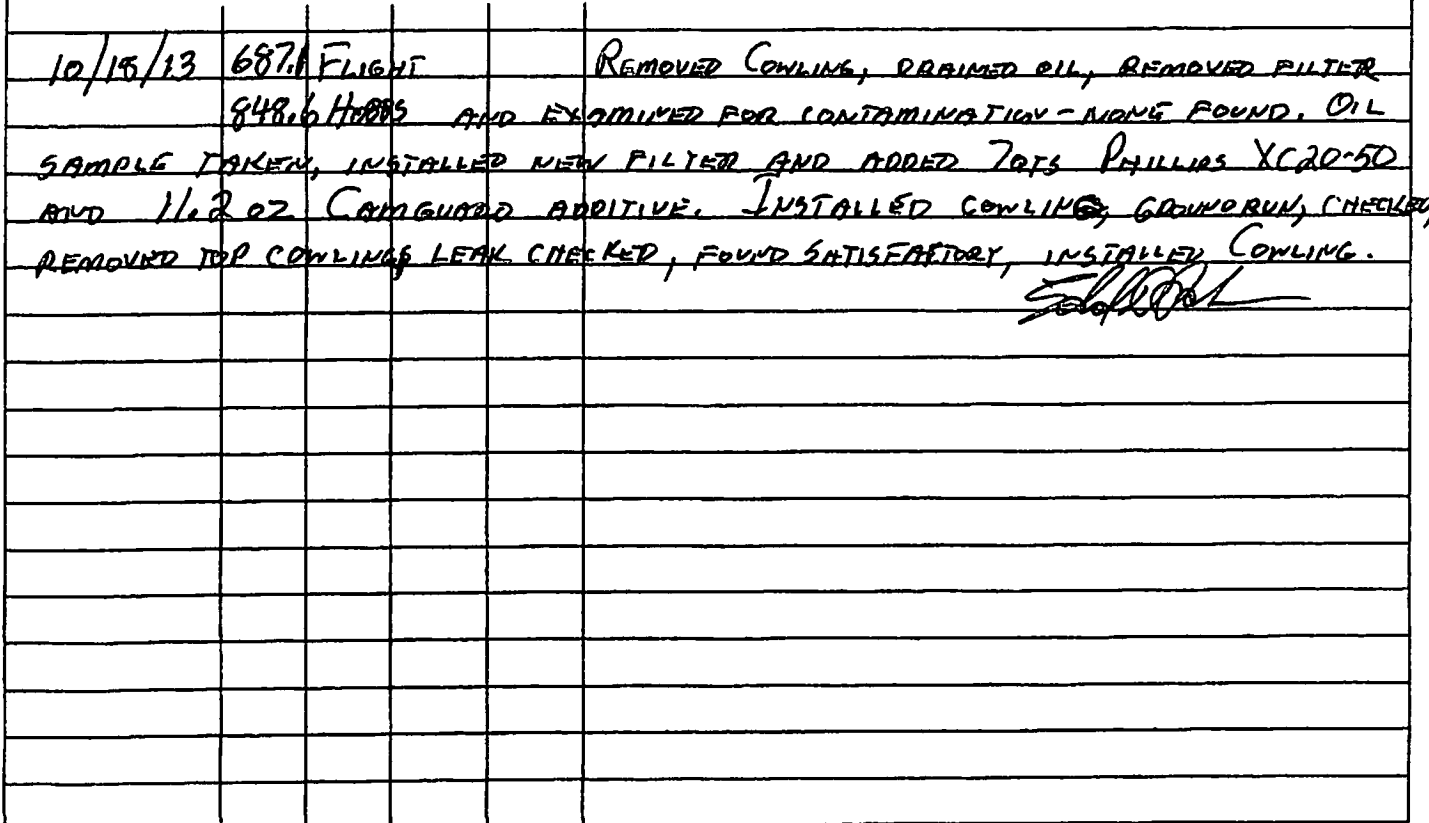 10/18/13 687.1 FLIGHT REMOVED COWLING, DRAINED OIL, REMOVED FILTER
848.6 HOBBS AND EXAMINED FOR CONTAMINATION - NONE FOUND. OIL
SAMPLE TAKEN, INSTALLED NEW FILTER AND ADDED 7QTS PHILLIPS XC20-50
AND 11.2 OZ CAMGUARD ADDITIVE. INSTALLED COWLING, GROUND RUN, CHECKED,
REMOVED TOP COWLING, LEAK CHECKED, FOUND SATISFACTORY, INSTALLED COWLING.